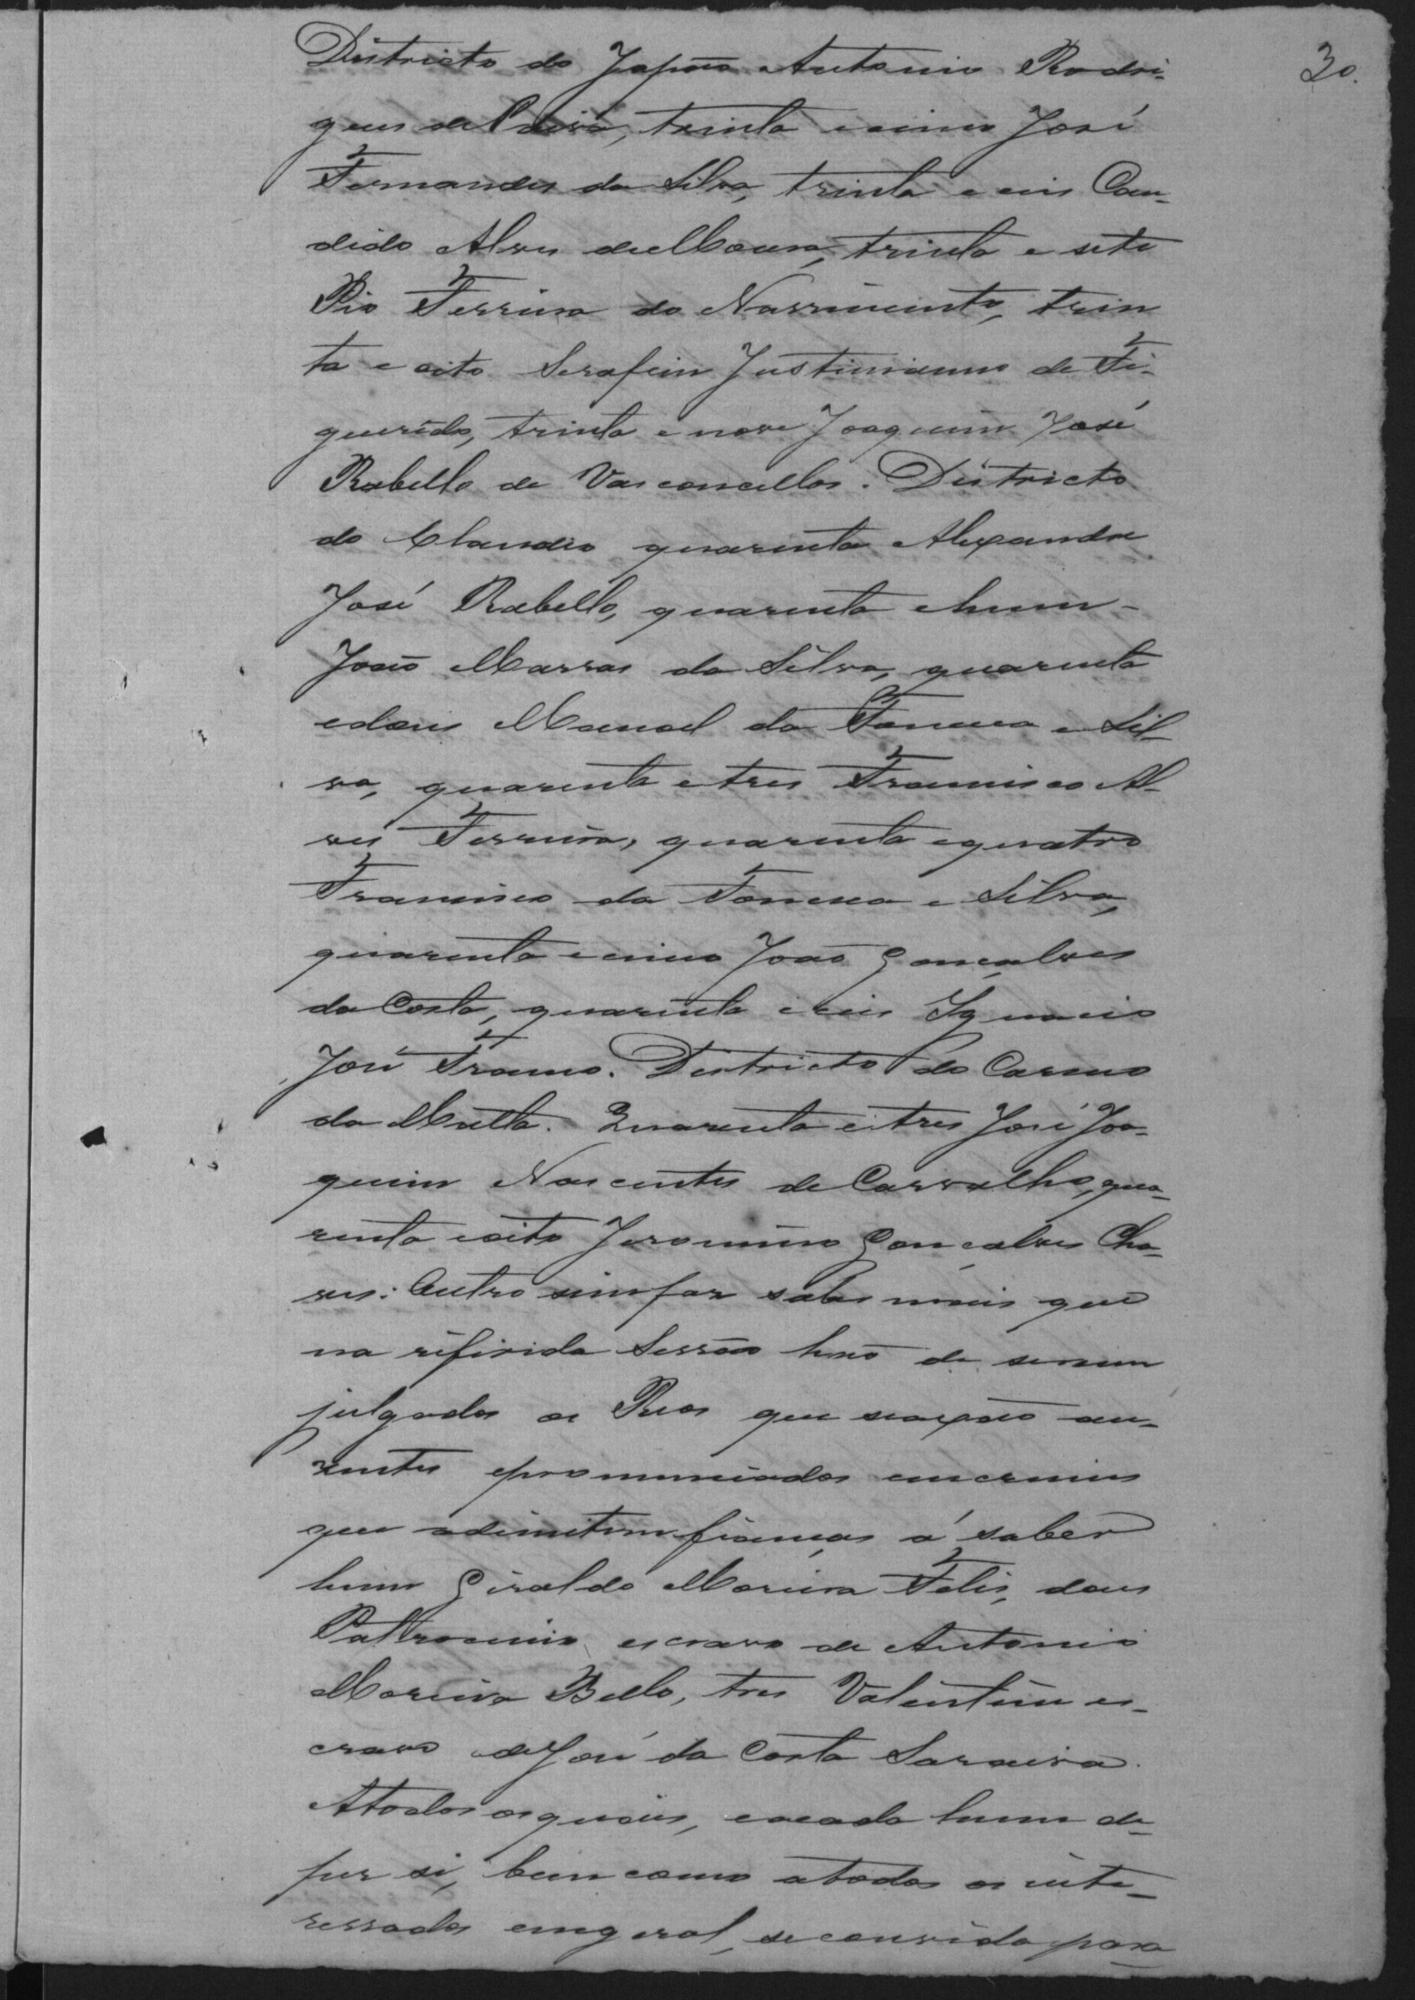 30.
Districto do Japão Antonio Rodri-
gues de Paiva, trinta e cinco José
Fernandes da Silva, trinta e ceis Can-
dido Alves de Moura, trinta e sete
Pio Ferreira do Nascimento, trin
ta e oito Serafim Justiniano de Fi-
gueredo, trinta e nove Joaquim José
Rabello de Vasconcellos. Districto
do Claudio quarenta Alexandre
José Rabello, quarenta e hum -
João Marras da Silva, quarenta
e dous Manoel da Fonceca e Sil-
va, quarenta e tres Francisco Al-
ves Ferreira, quarenta e quatro
Francisco da Fonceca e Silva,
quarenta e cinco João Gonçalves
da Costa, quarenta e ceis Ignacio
José Franco. Districto do Carmo
da Matta. Quarenta e tres José Joa-
quim Nascentes de Carvalho, qua-
renta e oito Jeronimo Gonçalves Cha-
ves: Outro sim faz saber mais que
na rifirida Sessão hão de serem
julgados os Reos que se axão au-
zentes e pronunciados em crimes
que adimitem fianças á saber
hum Giraldo Moreira Felis, dous
Pattrocinio escravo de Antonio
Moreira Bello, tres Valentim es-
cravo de José da Costa Saraiva.
A todos os quais, e a cada hum de
per si, bem como a todos os inte-
ressados em geral, se convida para